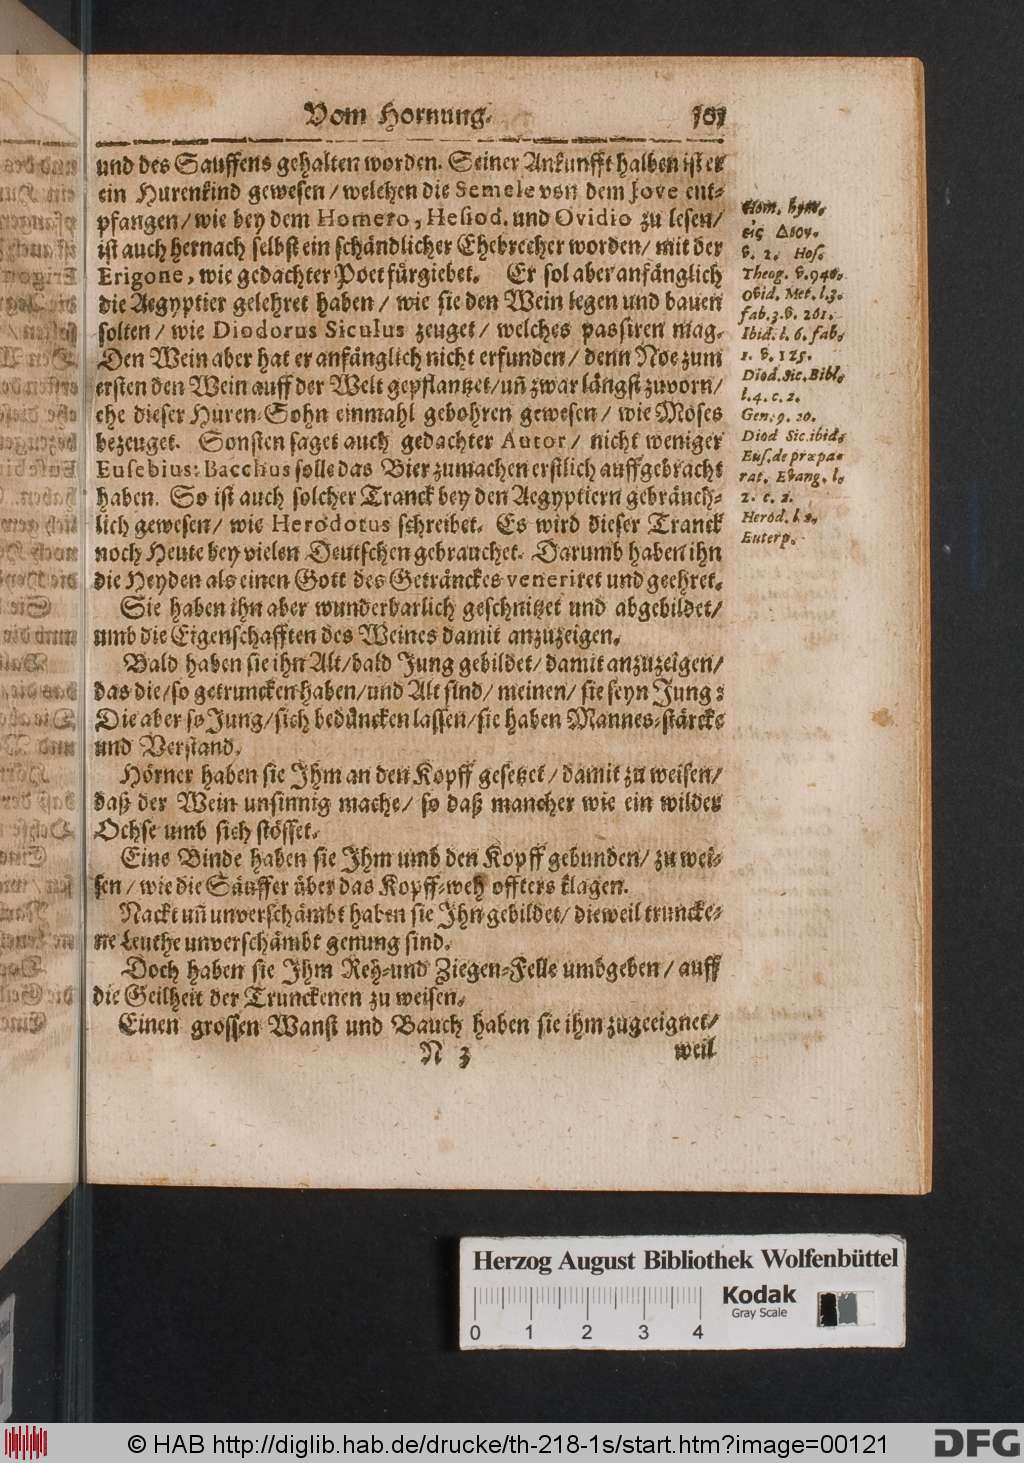 Vom Hornung. 101
und des Sauffens gehalten worden. Seiner Ankunfft halben ist er
ein Hurenkind gewesen / welchen die Semele von dem Jove ent-
pfangen / wie bey dem Homero, Hesiod. und Ovidio zu lesen /
ist auch hernach selbst ein schändlicher Ehebrecher worden / mit der
Erigone, wie gedachter Poet fürgiebet. Er sol aber anfänglich
die Aegyptier gelehret haben / wie sie den Wein legen und bauen
solten / wie Diodorus Siculus zeuget / welches passiren mag.
Den Wein aber hat er anfänglich nicht erfunden / denn Noe zum
ersten den Wein auff der Welt gepflantzet / uñ zwar längst zuvorn /
ehe dieser Huren-Sohn einmahl gebohren gewesen / wie Moses
bezeuget. Sonsten saget auch gedachter Autor / nicht weniger
Eusebius: Bacchus solle das Bier zumachen erstlich auffgebracht
haben. So ist auch solcher Tranck bey den Aegyptiern gebräuch-
lich gewesen / wie Herodotus schreibet. Es wird dieser Tranck
noch Heute bey vielen Deutschen gebrauchet. Darumb haben ihn
die Heyden als einen Gott des Geträнckes veneriret und geehret.
Sie haben ihn aber wunderbarlich geschnitzet und abgebildet /
umb die Eigenschafften des Weines damit anzuzeigen.
Bald haben sie ihn Alt / bald Jung gebildet / damit anzuzeigen /
das die / so getruncken haben / und Alt sind / meinen / sie seyn Jung:
Die aber so Jung / sich bedüncken lassen / sie haben Mannes-stärcke
und Verstand.
Hörner haben sie Ihm an den Kopff gesetzet / damit zu weisen /
daß der Wein unsinnig mache / so daß mancher wie ein wilder
Ochse umb sich stösset.
Eine Binde haben sie Ihm umb den Kopff gebunden / zu wei-
sen / wie die Säuffer über das Kopff-weh offters klagen.
Nackt uñ unverschämbt haben sie Ihn gebildet / dieweil truncke-
ne Leuthe unverschämbt genung sind.
Doch haben sie Ihm Reh- und Ziegen-Felle umbgeben / auff
die Geilheit der Trunckenen zu weisen.
Einen grossen Wanst und Bauch haben sie ihm zugeeignet /
N 3 weil
Hom. hym.
εἰς Διον.
v. 2. Hes.
Theog. v. 940.
Ovid. Met. l. 3.
fab. 3. v. 261.
Ibid. l. 6. fab.
1. v. 125.
Diod. Sic. Bibl.
l. 4. c. 2.
Gen. 9. 20.
Diod Sic. ibid.
Eus. de præpa-
rat. Evang. l.
2. c. 2.
Herod. l. 2.
Euterp.
Herzog August Bibliothek Wolfenbüttel
Kodak
Gray Scale
0 1 2 3 4
© HAB http://diglib.hab.de/drucke/th-218-1s/start.htm?image=00121
DFG